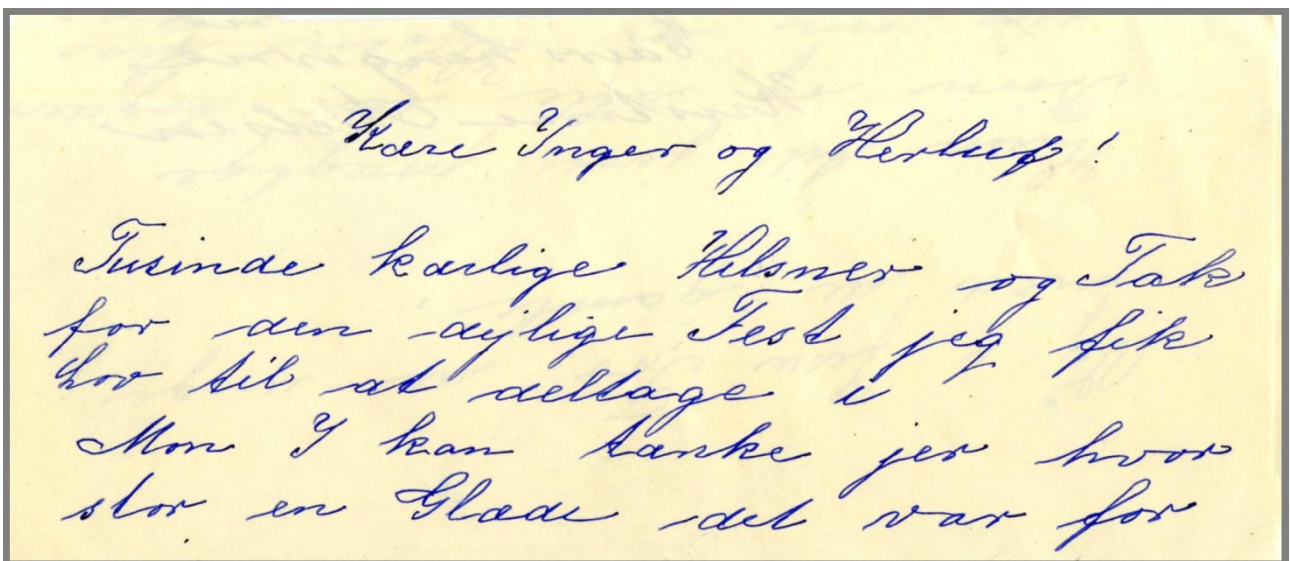 Kære Inger og Herluf!
Tusinde kærlige Hilsner og Tak
for den dejlige Fest jeg fik
lov til at deltage i
Mon I kan tænke jer hvor
stor en Glæde det var for